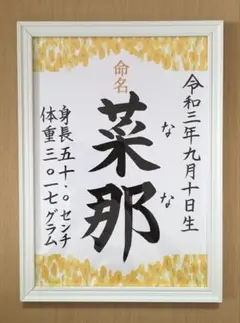 令和三年九月十日生
命名
菜那
なな
身長五十.〇センチ
体重三〇一七グラム